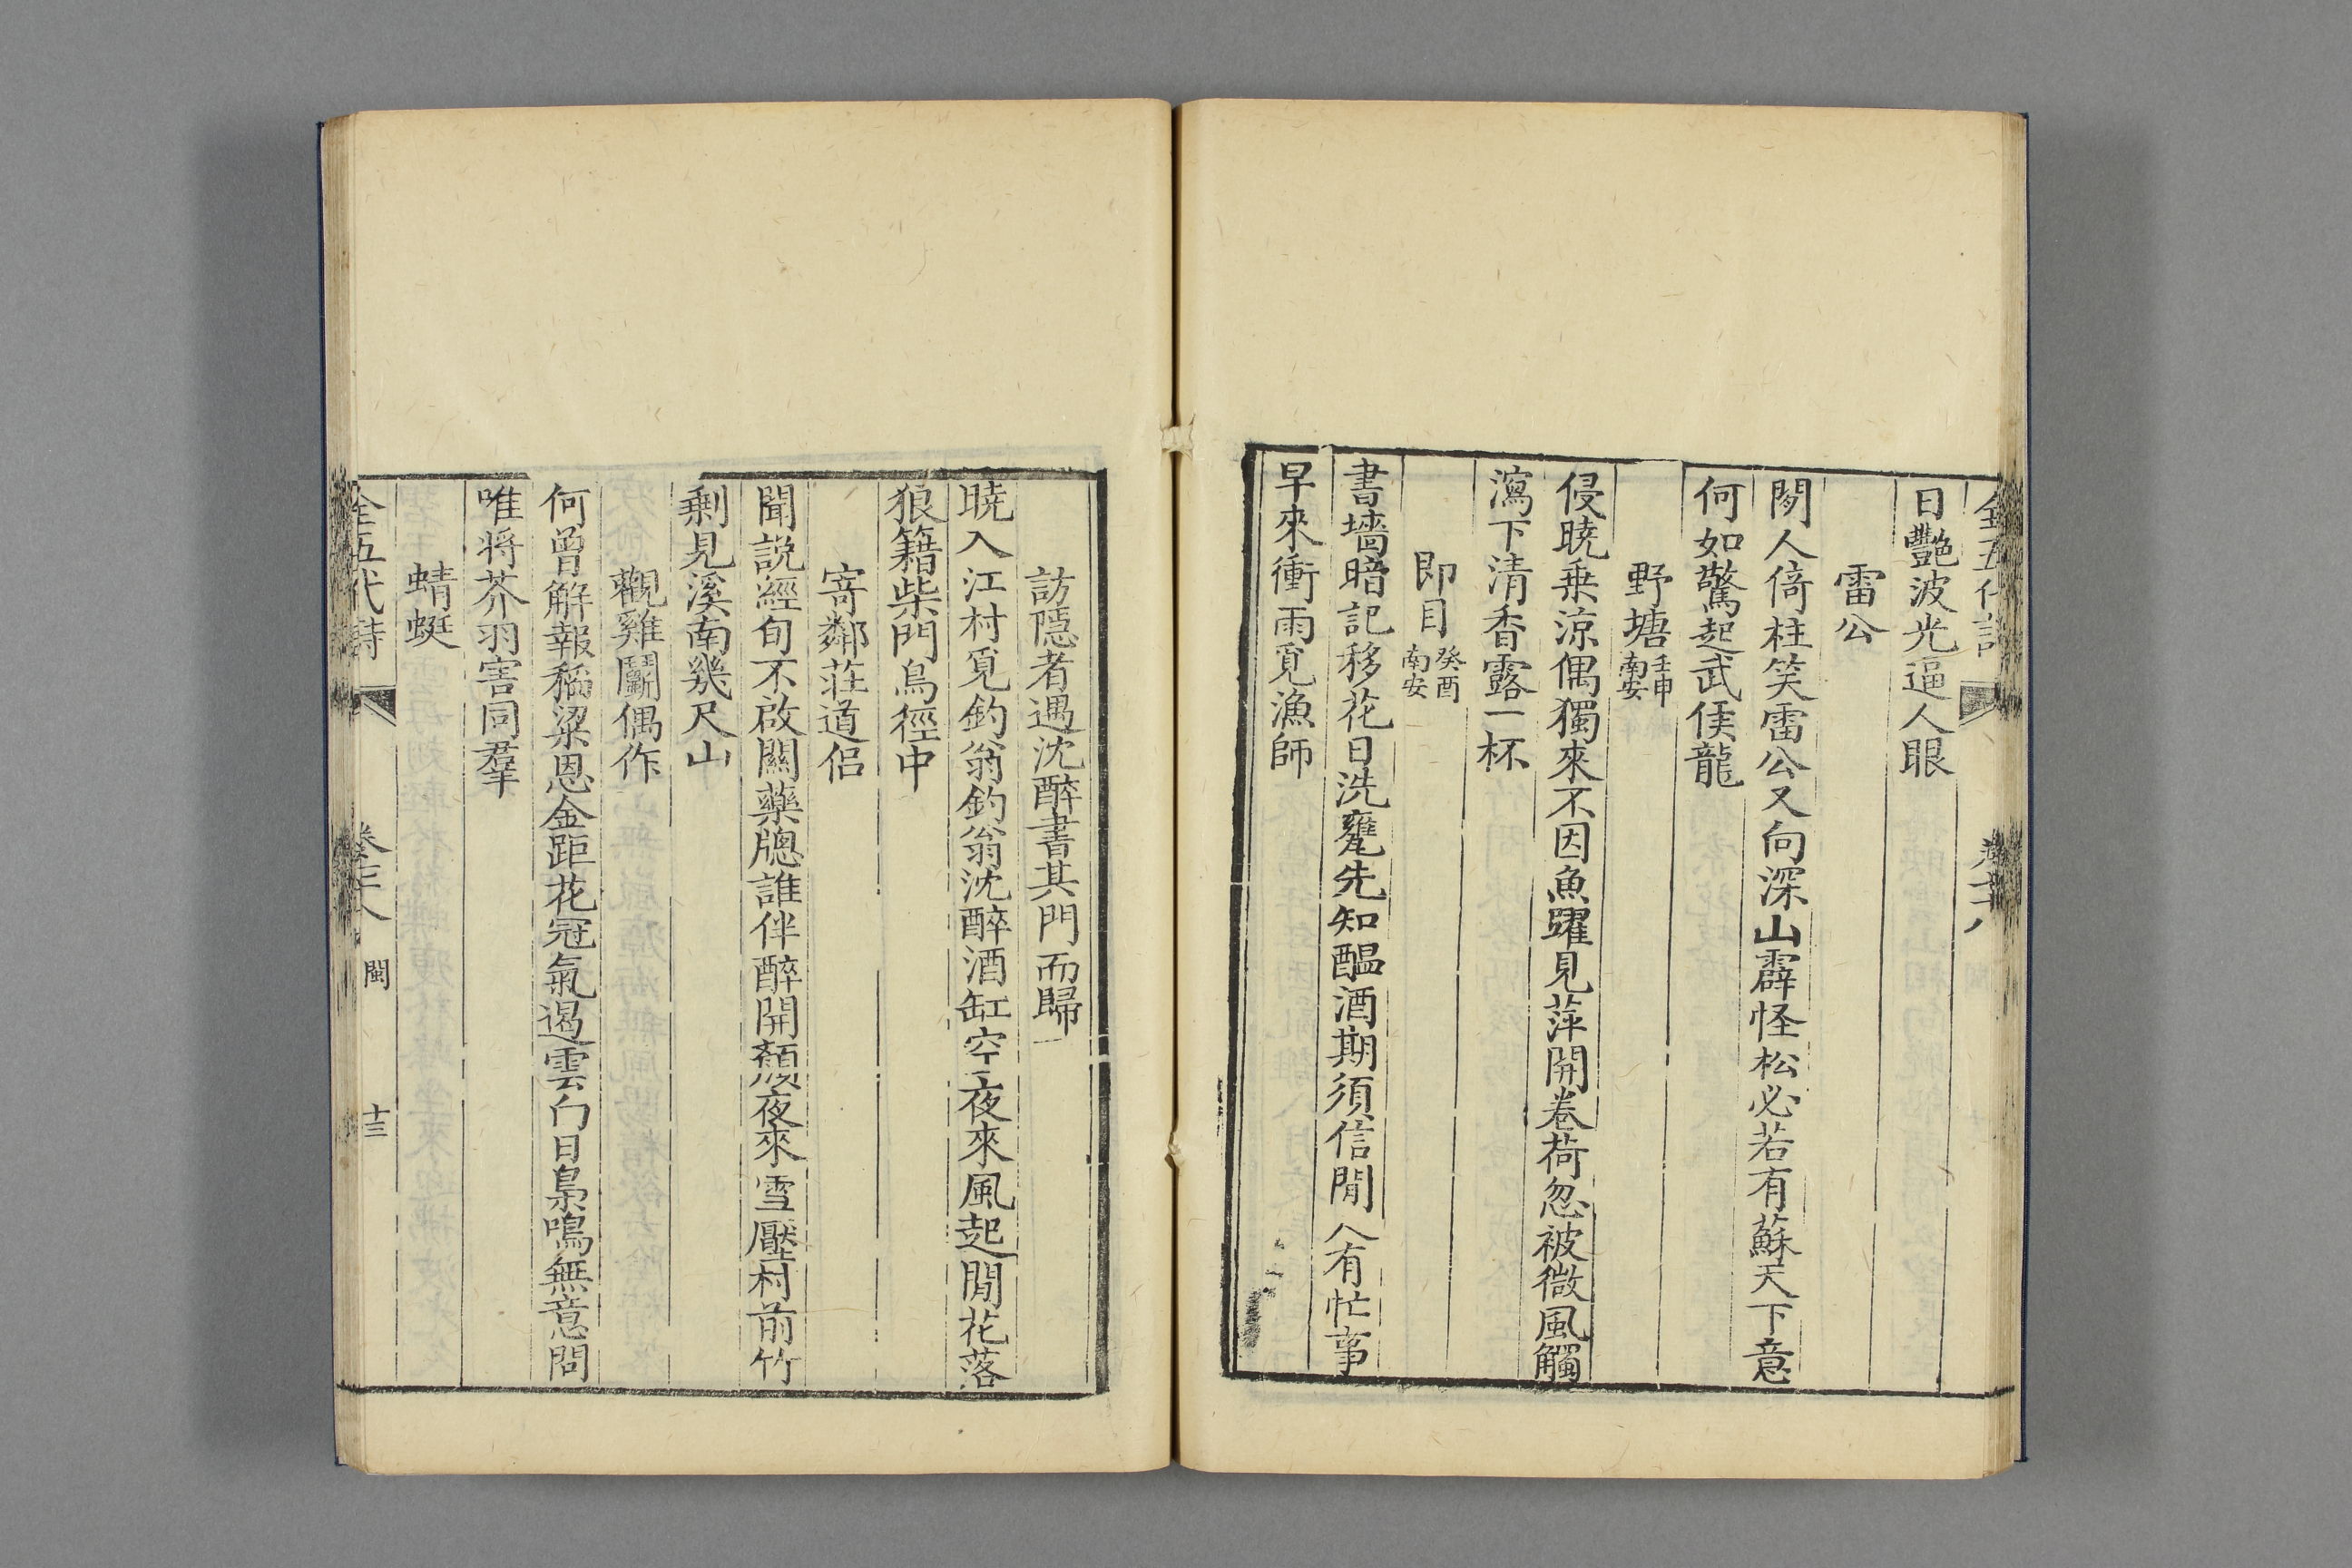 全五代詩
日艷波光逼人眼
雷公
閑人倚柱笑雷公又向深山霹怪松必若有蘇天下意
何如驚起武侯龍
野塘 壬申南安
侵曉乗涼偶獨來不因魚躍見萍開卷荷忽被微風觸
瀉下清香露一杯
即目 癸酉南安
書墻暗記移花日洗甕先知醖酒期須信閒人有忙事
早來衝雨覓漁師
訪隱者遇沈醉書其門而歸
曉入江村覓釣翁釣翁沈醉酒缸空夜來風起閒花落
狼籍柴門鳥徑中
寄鄰莊道侶
聞說經旬不啟關藥牕誰伴醉開顏夜來雪壓村前竹
剰見溪南幾尺山
觀雞鬭偶作
何曾解報稻粱恩金距花冠氣遏雲白日梟鳴無意問
唯將芥羽害同羣
蜻蜓
全五代詩 閩 十三